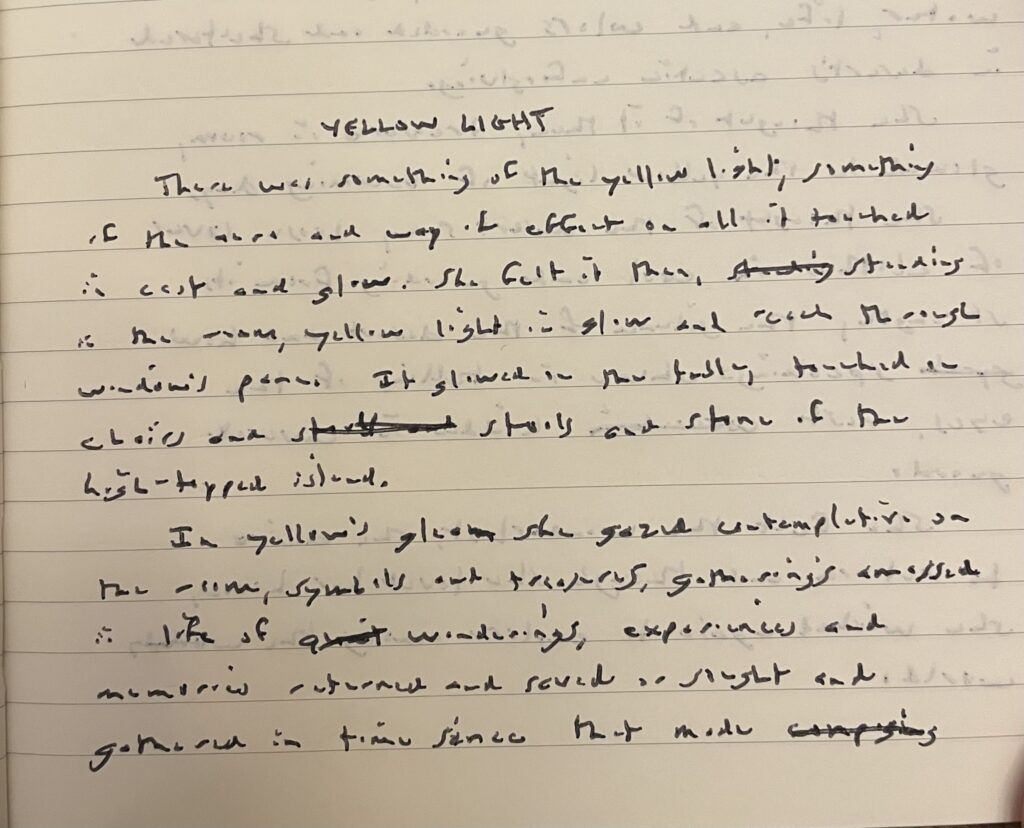 YELLOW LIGHT
There was something of the yellow light, something
of the aura and way of effect on all it touched
in cast and glow. She felt it then, standing standing
in the room, yellow light in glow and reach through
window's pane. It glowed on the table, touched on
chairs and stools and stone of the
high-topped island.
In yellow's gleam she gazed contemplative on
the room, symbols and treasures, gatherings amassed
in life of quiet wanderings, experiences and
memories returned and saved or sought and
gathered in time since that made